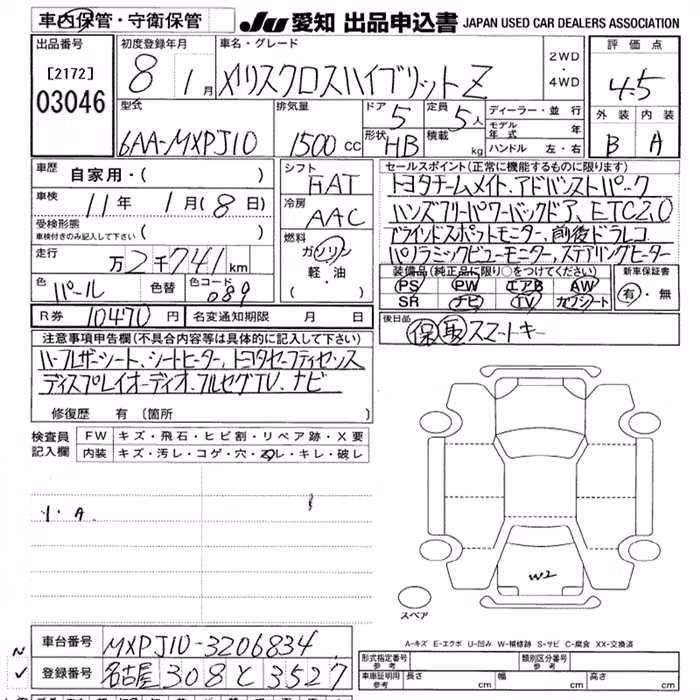 車内保管・守衛保管 JU 愛知 出品申込書 JAPAN USED CAR DEALERS ASSOCIATION
出品番号 [2172] 03046
初度登録年月 8 1月
車名・グレード ヤリスクロスハイブリットZ
2WD・4WD
評価点 4.5
外装 B 内装 A
型式 6AA-MXPJ10
排気量 1500 cc
ドア 5 定員 5人
形状 HB 積載 kg
ディーラー・並行
モデル年式 年
ハンドル 左・右
車歴 自家用・( )
車検 11年 1月(8日)
受検形態 車検付きのみ記入して下さい ( )
走行 万2千741km
色 パール 色替 色コード 089
シフト FAT
冷房 AAC
燃料 ガソリン 軽・油 ( )
R券 10470円 名変通知期限 月 日
セールスポイント(正常に機能するものに限ります)
トヨタチームメイト、アドバンストパーク
ハンズフリーパワーバックドア、ETC2.0
ブラインドスポットモニター、前後ドラレコ
パノラミックビューモニター、ステアリングヒーター
装備品(純正品に限り○をつけてください) 新車保証書
PS PW エアB AW 有・無
SR ナビ TV カワシート
後日品 保 取 スマートキー
注意事項申告欄(不具合内容等は具体的に記入して下さい)
ハーフレザーシート、シートヒーター、トヨタセーフティセンス
ディスプレイオーディオ、フルセグTV、ナビ
修復歴 有(箇所 )
検査員記入欄 FW キズ・飛石・ヒビ割・リペア跡・X要
内装 キズ・汚レ・コゲ・穴・スレ・キレ・破レ
A
W2
スペア
A-キズ E-エクボ U-凹み W-補修跡 S-サビ C-腐食 XX-交換済
車台番号 MXPJ10-3206834
登録番号 名古屋 308 と 3527
形式指定番号 参考 類別区分番号 参考
車庫証明用 参考 長さ 幅 高さ